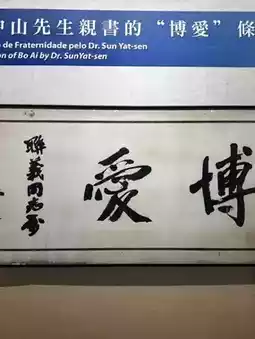 中山先生親書的 “博愛” 條
de Fraternidade pelo Dr. Sun Yat-sen
on of Bo Ai by Dr. SunYat-sen
博愛
聯義同志屬